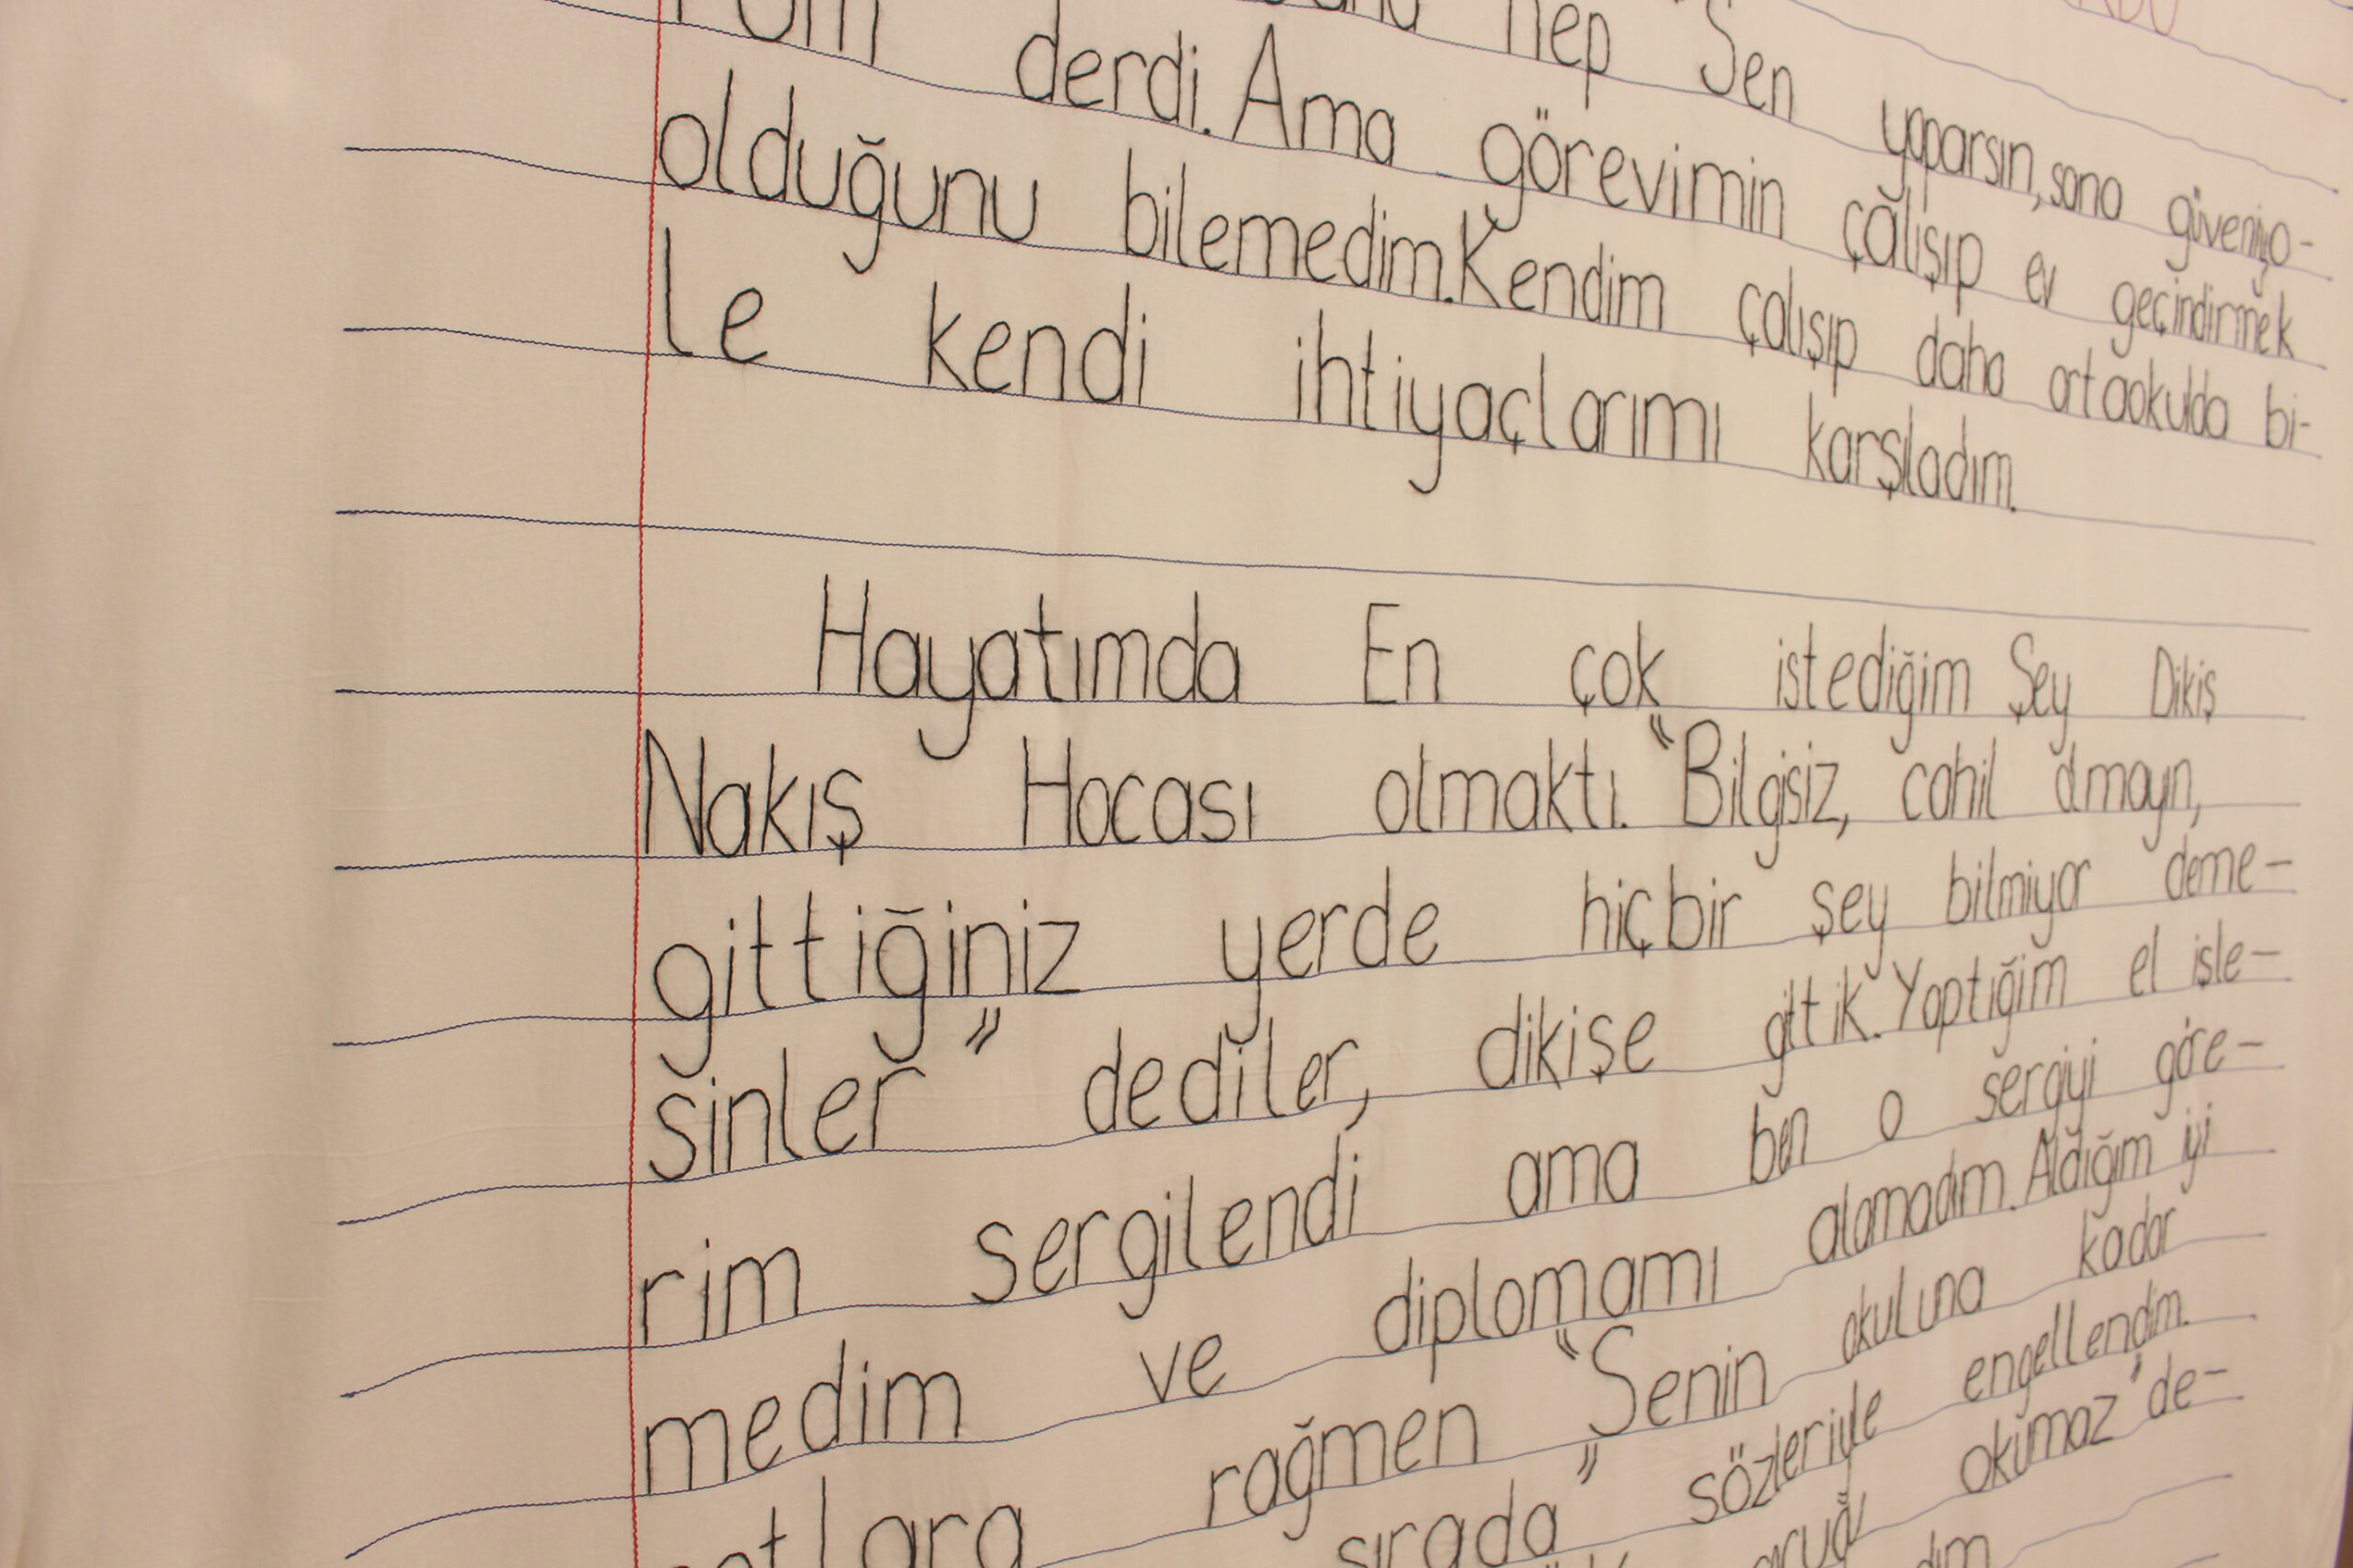 hep "Sen yaparsın, sana güveniyo-
rum derdi. Ama görevimin çalışıp ev geçindirmek
olduğunu bilemedim. Kendim çalışıp daha ortaokulda bi-
le kendi ihtiyaçlarımı karşıladım.
Hayatımda En çok istediğim Şey Dikiş
Nakış Hocası olmaktı. "Bilgisiz, cahil olmayın,
gittiğiniz yerde hiçbir şey bilmiyor deme-
sinler" dediler, dikişe gittik. Yaptığım el işle-
rim sergilendi ama ben o sergiyi göre-
medim ve diplomamı alamadım. Aldığım iyi
rağmen "Senin okuluna kadar
sırada" sözleriyle engellendim.
okumaz" de-